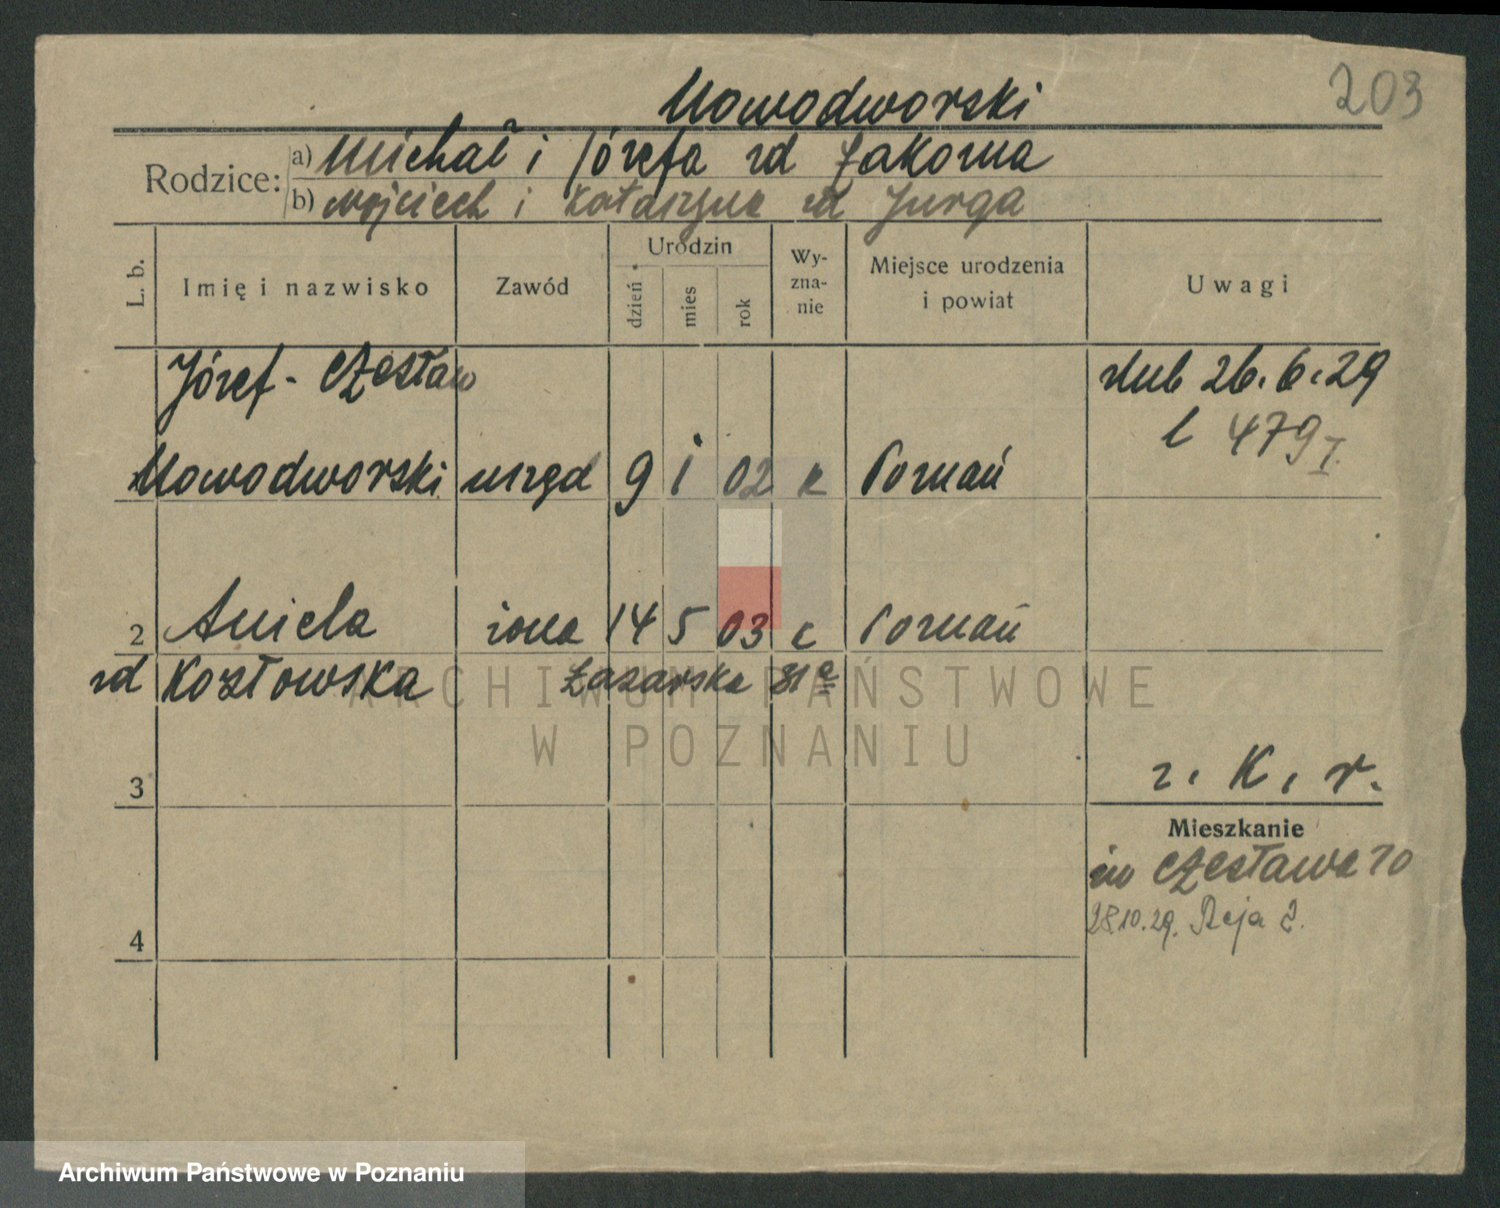 203
Nowodworski
Rodzice:
a) Michał i Józefa zd Łakoma
b) Wojciech i Katarzyna zd Jurga
L. b.
Imię i nazwisko
Zawód
Urodzin
dzień
mies
rok
Wy-
zna-
nie
Miejsce urodzenia
i powiat
Uwagi
Józef - Czesław
ślub 26.6.29
l 479 I.
Nowodworski urzęd 9 i 02 k Poznań
2 Aniela żona 14 5 03 k Poznań
zd Kozłowska Łazarska 81a
ARCHIWUM PAŃSTWOWE
W POZNANIU
r. K. r.
3
Mieszkanie
św Czesława 10
28.10.29. Reja 2.
4
Archiwum Państwowe w Poznaniu